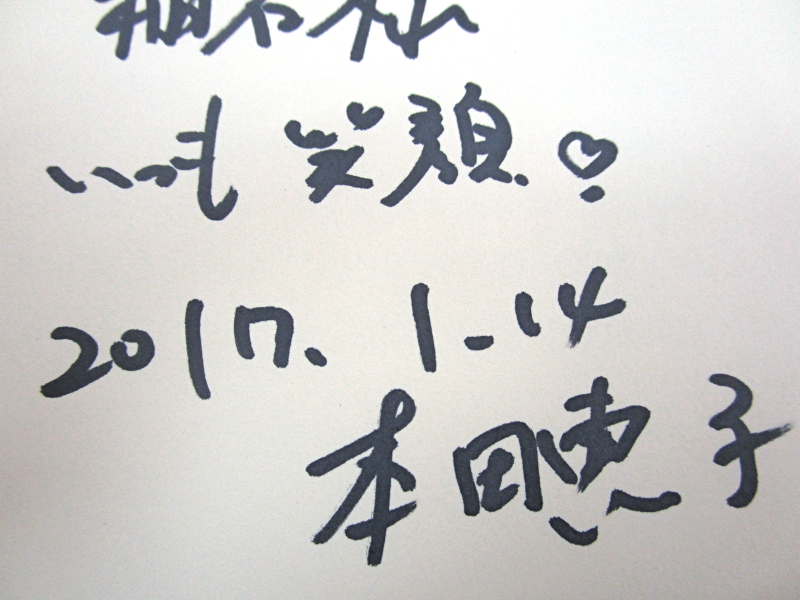 様
いつも 笑顔♡
2017. 1.14
本田恵子